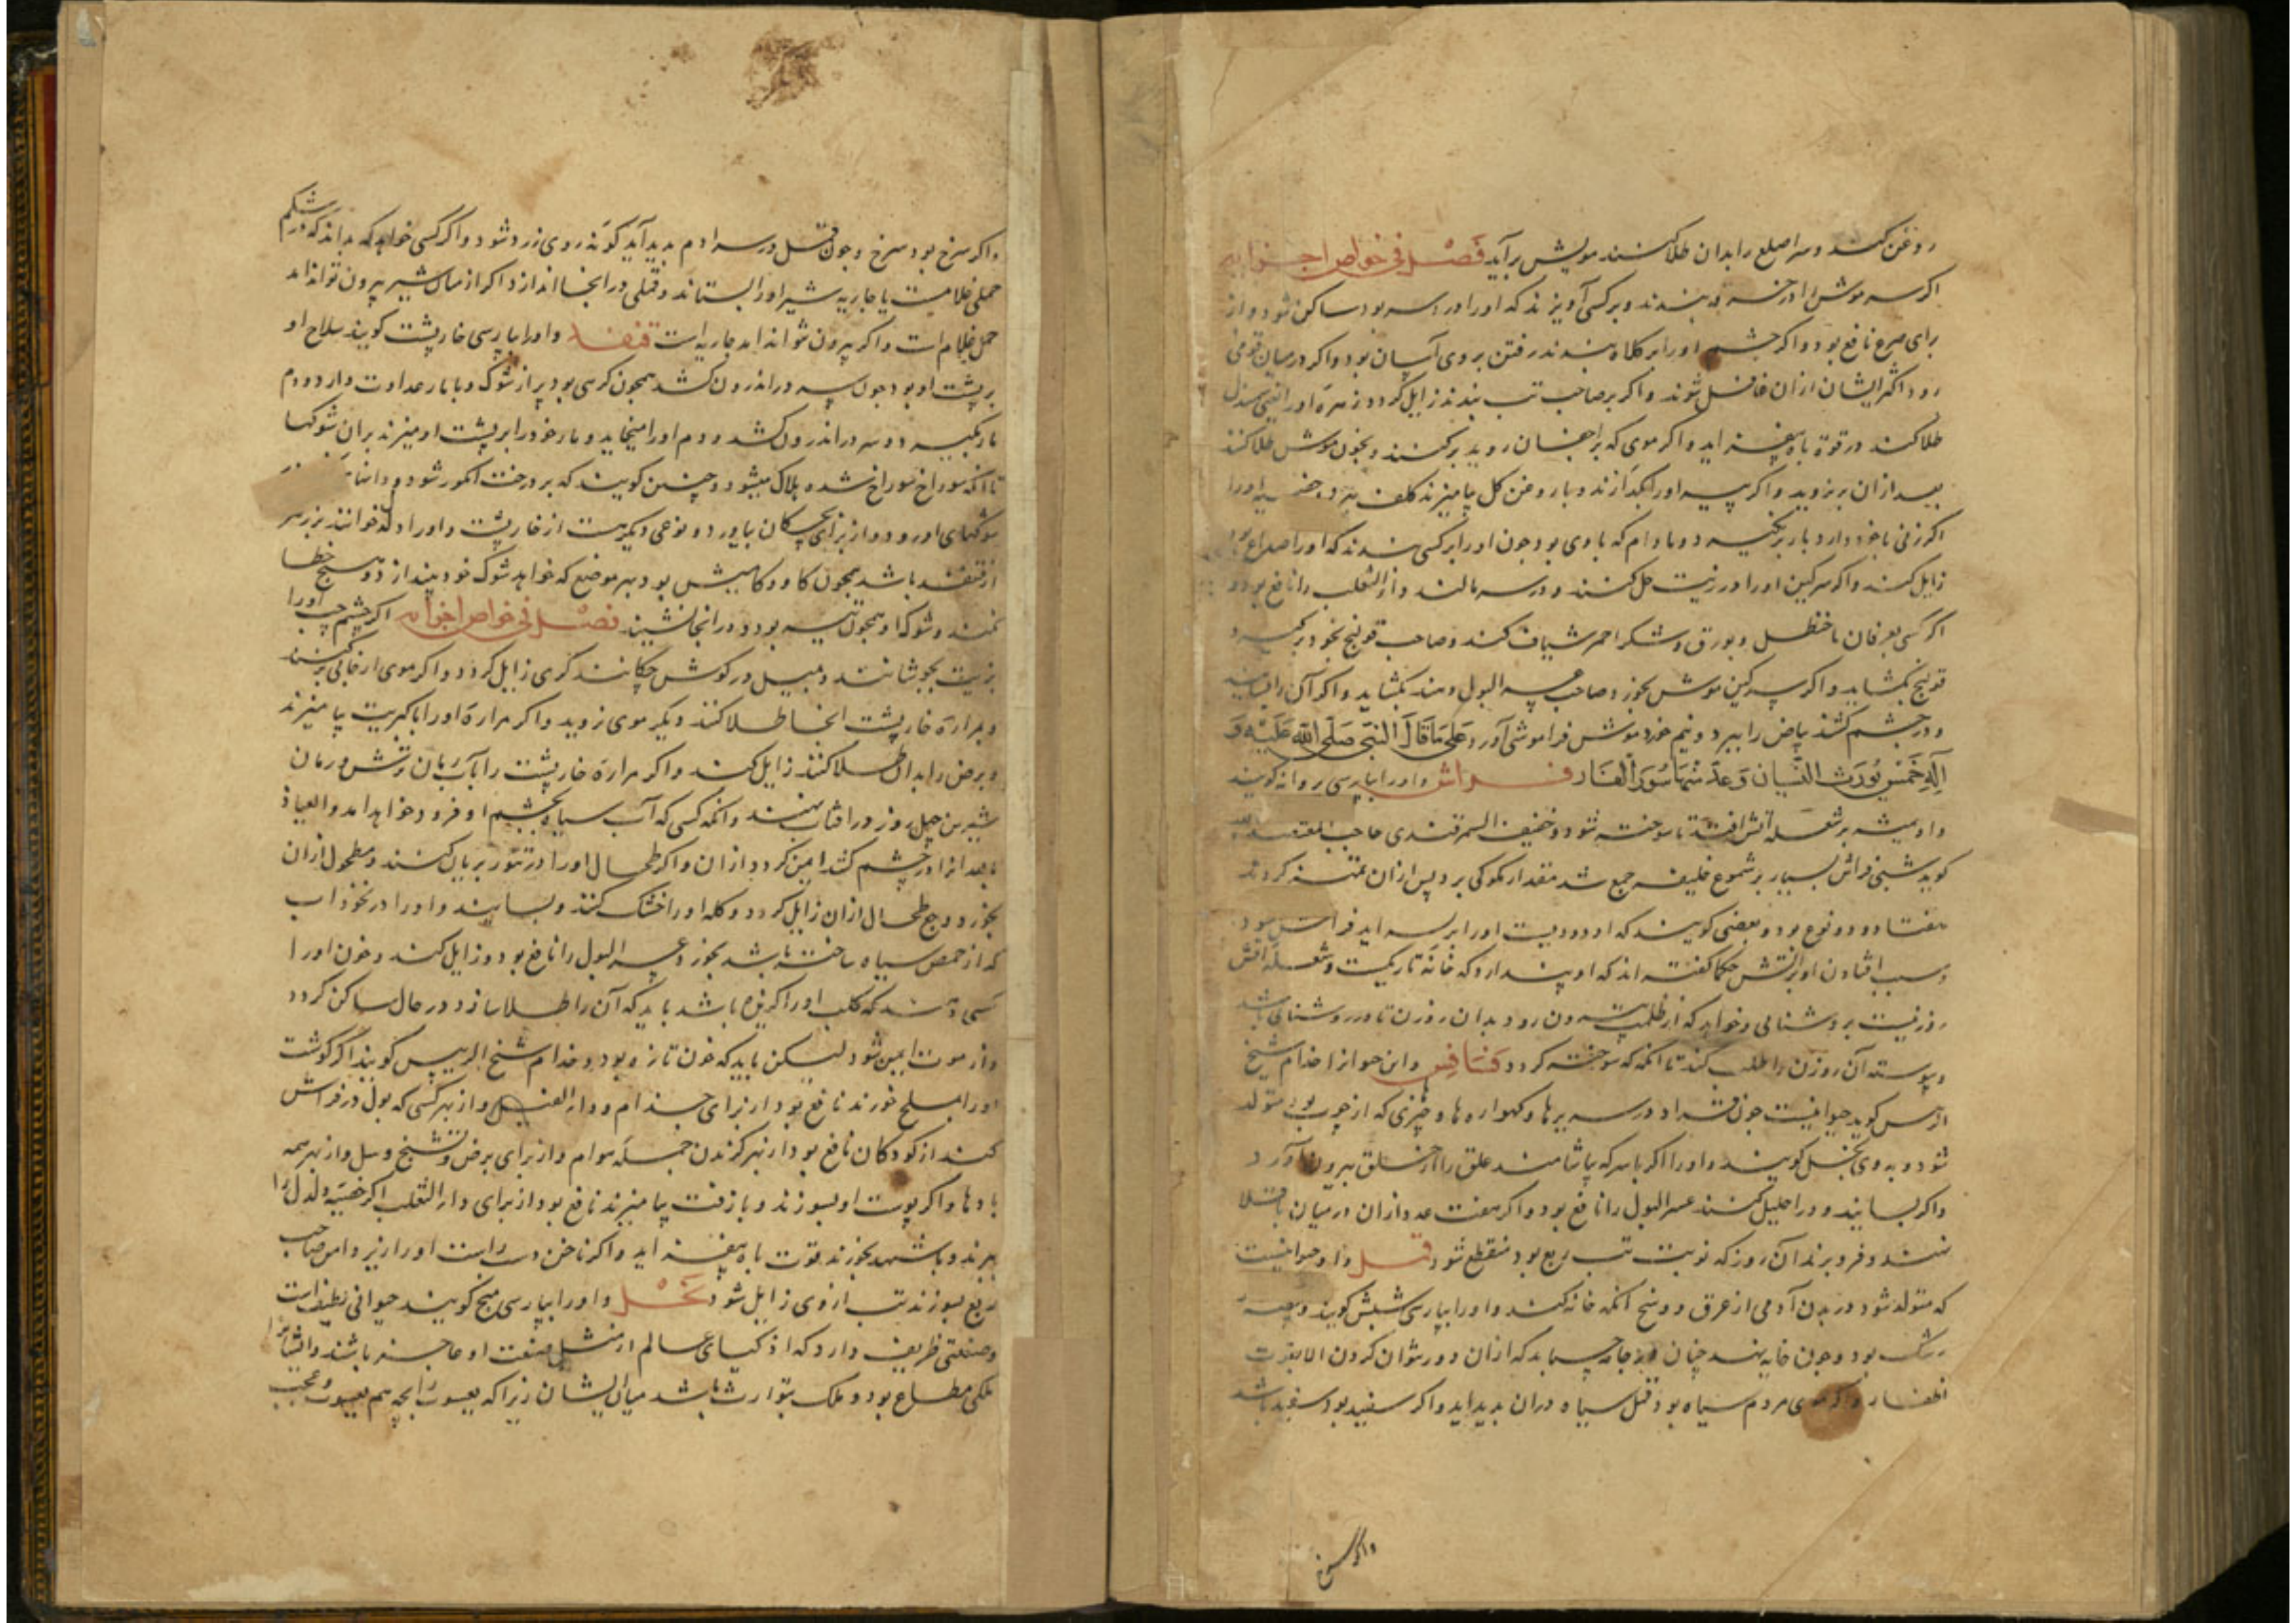 روغن کنند و سر اصلع را بدان طلا کنند مویش برآید فصل فی خواص اجزایه
اکر سر موش را در خرقه بندند و برکسی آویزند که اورا درد سر بود ساکن شود و از
برای صرع نافع بود و اکر چشم اورا بر کلاه بندند رفتن بروی آسان بود و اکر درمیان قومی
رود اکثر ایشان ازان غافل شوند و اکر بر صاحب تب بندند زایل کردد زهره اورا
طلا کنند در قوة باه بیفزاید و اکر موی که بر اجفان روید برکنند و بخون موش طلا کنند
بعد ازان نروید و اکر پیه اورا بکدازند و با روغن کل بیامیزند کلف ببرد اورا
اکر زنی با خود دارد بار نکیرد مادام که با وی بود چون اورا برکسی بندند که اورا صداع
زایل کند و اکر سرکین اورا در زیت حل کنند و در سر مالند داء الثعلب را نافع بود و
اکر کسی بعرفان با حنظل و بورق و شکر احمر شیاف کند و صاحب قولنج بخود برکیرد
قولنج بکشاید و اکر سرکین موش بخورد صاحب عسر البول دهند بکشاید و اکر آن را بسایند
و در چشم کشند بیاض را ببرد و نیم خورد موش فراموشی آورد علی ما قال النبی صلی الله علیه و
آله خمس یورث النسیان و عد منها سور الفار فراش و اورا بپارسی پروانه کویند
و او همیشه بر شعله آتش افتد تا سوخته شود و خفیف السمرقندی حاجب المعتضد
کوید شبی فراش بسیار بر شموع خلیفه جمع شد مقدار مکوکی برد پس ازان تمییز کردند
هفتاد و دو نوع بود و بعضی کویند که او دودیست اورا پر برآید فراش بود
و سبب افتادن او بر آتش حکما کفته اند که او پندارد که خانه تاریکست و شعله آتش
روزنیست بروشنایی و خواهد که از ظلمت بیرون رود بدان روزن تا در روشنایی باشد
و پیوسته آن روزن را طلب کند تا آنکه که سوخته کردد فسافس و این حواز اخدام شیخ
الرئیس کوید حیوانیست چون قراد در سریرها و کهوارها و چیزی که از چوب بود متولد
شود و بوی کویند و اورا اکر با سرکه بیاشامند علق را از حلق بیرون آورد
و اکر بسایند و در احلیل کنند عسر البول را نافع بود و اکر هفت عدد ازان در میان باقلا
نهند و فرو برند آن روز که نوبت تب ربع بود منقطع شود قمل و او حیوانیست
که متولد شود در بدن آدمی از عرق و وسخ آنکه خانه کند و اورا بپارسی شپش کویند و بیضه
رشک بود و چون خایه نهد چنان در جامه چسباند که ازان دور نتوان کردن الا بقرت
اظفار و اکر موی مردم سیاه بود قمل سیاه دران پدید آید و اکر سفید بود سفید باشد
و اکر سرخ
و اکر سرخ بود سرخ و چون قمل در سر آدم پدید آید کونه روی زرد شود و اکر کسی خواهد که بداند که در شکم
حملی غلامست یا جاریه شیر اورا بستاند و قملی در انجا اندازد اکر از میان شیر بیرون تواند آمد
حمل غلام است و اکر بیرون نتواند آمد جاریه است قنفذ و اورا بپارسی خارپشت کویند سلاح او
بر پشت او بود چون سر در اندرون کشد همچون کرهی بود پر از شوک و با مار عداوت دارد و دم
مار بکیرد و سر در اندرون کشد و دم اورا میخاید و مار خود را بر پشت او میزند بران شوکها
تا آنکه سوراخ سوراخ شده هلاک میشود و چنین کویند که بر درخت انکور شود و دانها
شوکهای او رود و از برای بچکان بیاورد و نوعی دیکرست از خارپشت و اورا دلدل خوانند بزرکتر
از قنفذ باشد همچون کاو و کامیش بود بهر موضع که خواهد شوک خود بیندازد و هیچ خطا
نکند و شوک او همچون تیر بود و در انجا نشیند فصل فی خواص اجزایه اکر چشم چپ اورا
بزیت بجوشانند و بمیل در کوش چکانند کری زایل کردد و اکر موی از جایی برکنند
و بمرارة خارپشت انجا طلا کنند دیکر موی نروید و اکر مرارة اورا با کبریت بیامیزند
و برص را بدان طلا کنند زایل کند و اکر مرارة خارپشت را با آب رمان ترش و رمان
شیرین چهل روز در افتاب نهند و آنکه کسی که آب سیاه بچشم او فرود خواهد آمد و العیاذ
بالله آنرا در چشم کشد ایمن کردد ازان و اکر طحال اورا در تنور بریان کنند و مطحول ازان
بخورد وجع طحال ازان زایل کردد و کله اورا خشک کنند و بسایند و اورا در نخود اب
که از حمص سیاه ساخته باشد بخورد عسر البول را نافع بود و زایل کند و خون اورا
کسی که کلب اورا کزیده باشد باید که آن را طلا سازد در حال ساکن کردد
و از موت ایمن شود لیکن باید که خون تازه بود و خدام شیخ الرییس کویند اکر کوشت
اورا بملح خورند نافع بود از برای جذام و داء الفیل و از بهر کسی که بول در فراش
کنند از کودکان نافع بود از بهر کزیدن جمله هوام و از برای برص و تشنج و سل و از بهر همه
بادها و اکر پوست او بسوزند و با زفت بیامیزند نافع بود از برای داء الثعلب اکر خصیه دلدل را
ببرند و با شهد بخورند قوت باه بیفزاید و اکر ناخن دست راست اورا زیر دامن صاحب
ربع بسوزند تب از وی زایل شود نحل و اورا بپارسی منج کویند حیوانی لطیفست
و صنعتی ظریف دارد که اذکیای عالم از مثل صنعت او عاجز باشند و ایشانرا
ملکی مطاع بود و ملک بتوارث باشد میان ایشان زیرا که یعسوب را بچه هم یعسوب و عجب